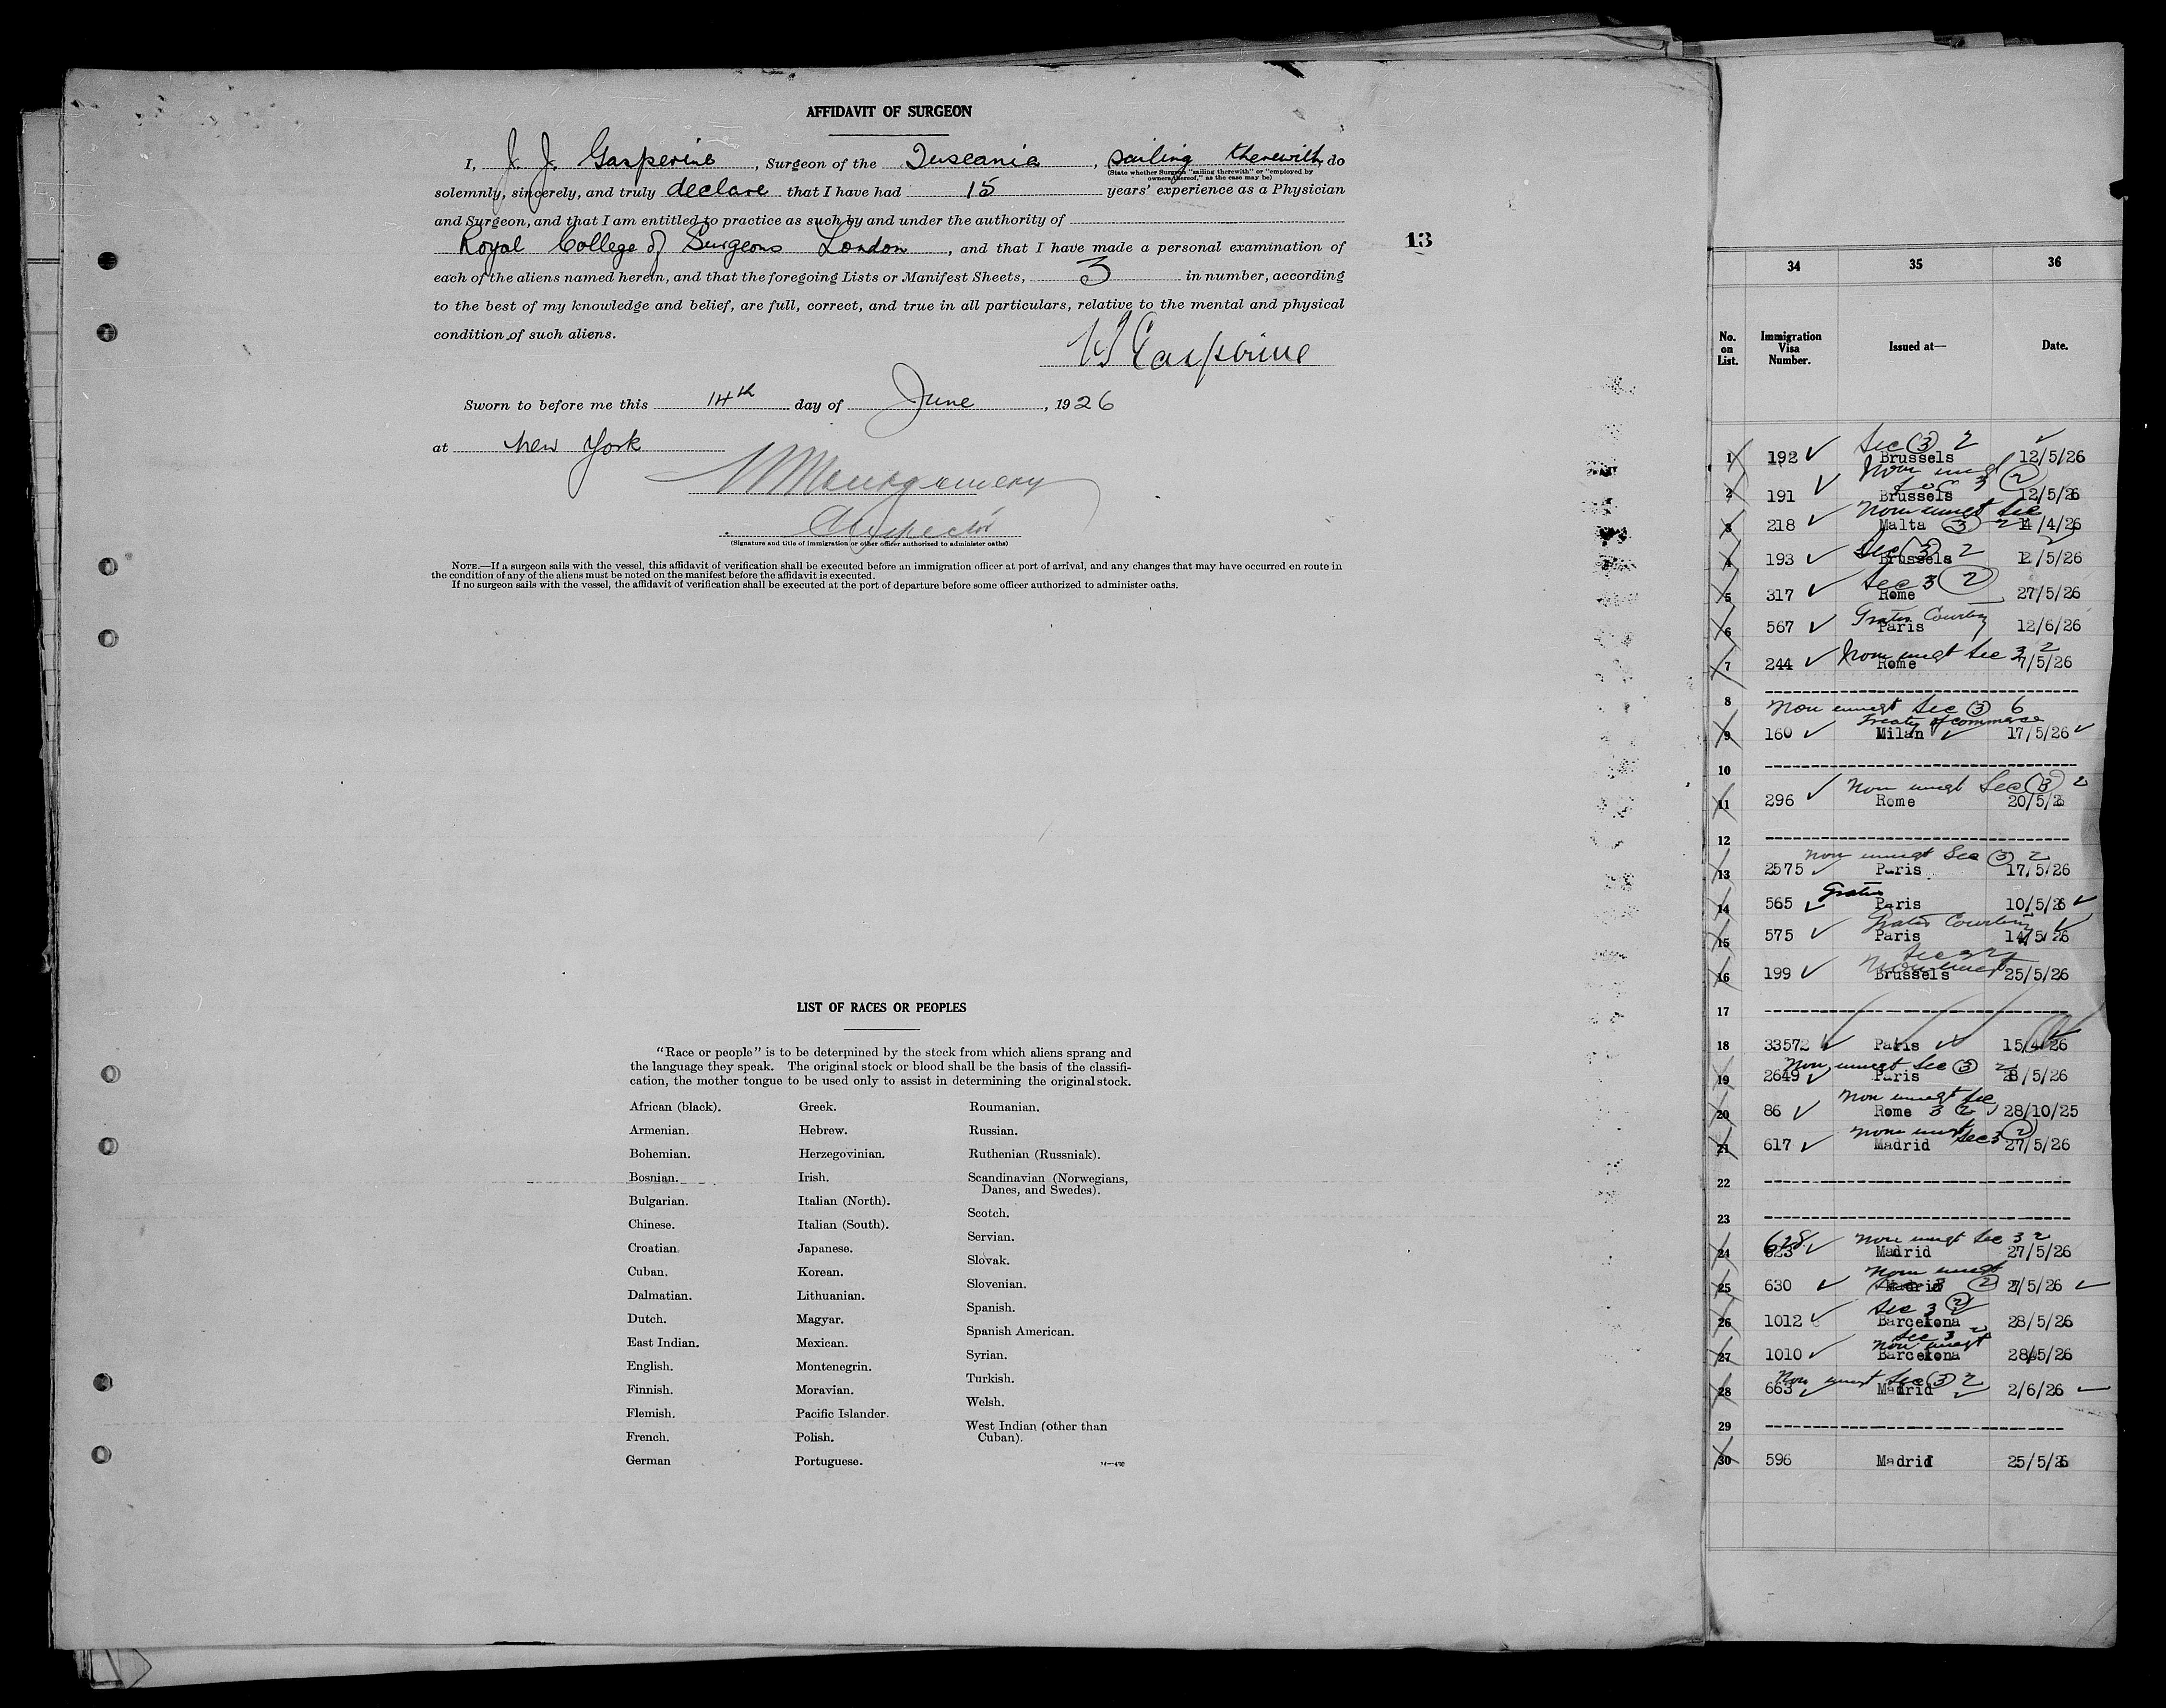 AFFIDAVIT OF SURGEON
I, J. J. Gasperine, Surgeon of the Tuscania, sailing therewith, do
(State whether Surgeon "sailing therewith" or "employed by
owners thereof," as the case may be)
solemnly, sincerely, and truly declare that I have had 15 years' experience as a Physician
and Surgeon, and that I am entitled to practice as such by and under the authority of
Royal College of Surgeons London, and that I have made a personal examination of
13
each of the aliens named herein, and that the foregoing Lists or Manifest Sheets, 3 in number, according
to the best of my knowledge and belief, are full, correct, and true in all particulars, relative to the mental and physical
condition of such aliens.
Gasperine
Sworn to before me this 14th day of June, 1926
at New York
Montgomery
Inspector
(Signature and title of immigration or other officer authorized to administer oaths)
NOTE.—If a surgeon sails with the vessel, this affidavit of verification shall be executed before an immigration officer at port of arrival, and any changes that may have occurred en route in
the condition of any of the aliens must be noted on the manifest before the affidavit is executed.
If no surgeon sails with the vessel, the affidavit of verification shall be executed at the port of departure before some officer authorized to administer oaths.
LIST OF RACES OR PEOPLES
"Race or people" is to be determined by the stock from which aliens sprang and
the language they speak. The original stock or blood shall be the basis of the classifi-
cation, the mother tongue to be used only to assist in determining the original stock.
African (black).
Armenian.
Bohemian.
Bosnian.
Bulgarian.
Chinese.
Croatian.
Cuban.
Dalmatian.
Dutch.
East Indian.
English.
Finnish.
Flemish.
French.
German
Greek.
Hebrew.
Herzegovinian.
Irish.
Italian (North).
Italian (South).
Japanese.
Korean.
Lithuanian.
Magyar.
Mexican.
Montenegrin.
Moravian.
Pacific Islander.
Polish.
Portuguese.
Roumanian.
Russian.
Ruthenian (Russniak).
Scandinavian (Norwegians,
Danes, and Swedes).
Scotch.
Servian.
Slovak.
Slovenian.
Spanish.
Spanish American.
Syrian.
Turkish.
Welsh.
West Indian (other than
Cuban).
34 35 36
No. on List. Immigration Visa Number. Issued at— Date.
Sec 3 2
1 192 Brussels 12/5/26
Non imgt
Sec 3 2
2 191 Brussels 12/5/26
Non imgt Sec
3 218 Malta 3 2 14/4/26
Sec 3 2
4 193 Brussels 12/5/26
Sec 3 2
5 317 Rome 27/5/26
Gratis Courtesy
6 567 Paris 12/6/26
Non imgt Sec 3 2
7 244 Rome 7/5/26
8
Non imgt Sec 3 6
Treaty of commerce
9 160 Milan 17/5/26
10
Non imgt Sec 3 2
11 296 Rome 20/5/26
12
Non imgt Sec 3 2
13 2575 Paris 17/5/26
Gratis
14 565 Paris 10/5/26
Gratis Courtesy
15 575 Paris 14/5/26
Sec 3 2
Non imgt
16 199 Brussels 25/5/26
17
18 33572 Paris 15/4/26
Non imgt Sec 3 2
19 2649 Paris 28/5/26
Non imgt Sec
20 86 Rome 3 2 28/10/25
Non imgt Sec 3 2
21 617 Madrid 27/5/26
22
23
628 Non imgt Sec 3 2
24 623 Madrid 27/5/26
Non imgt
25 630 Madrid 2 27/5/26
Sec 3 2
26 1012 Barcelona 28/5/26
Sec 3 2
Non imgt
27 1010 Barcelona 28/5/26
Non imgt Sec 3 2
28 663 Madrid 2/6/26
29
30 596 Madrid 25/5/26